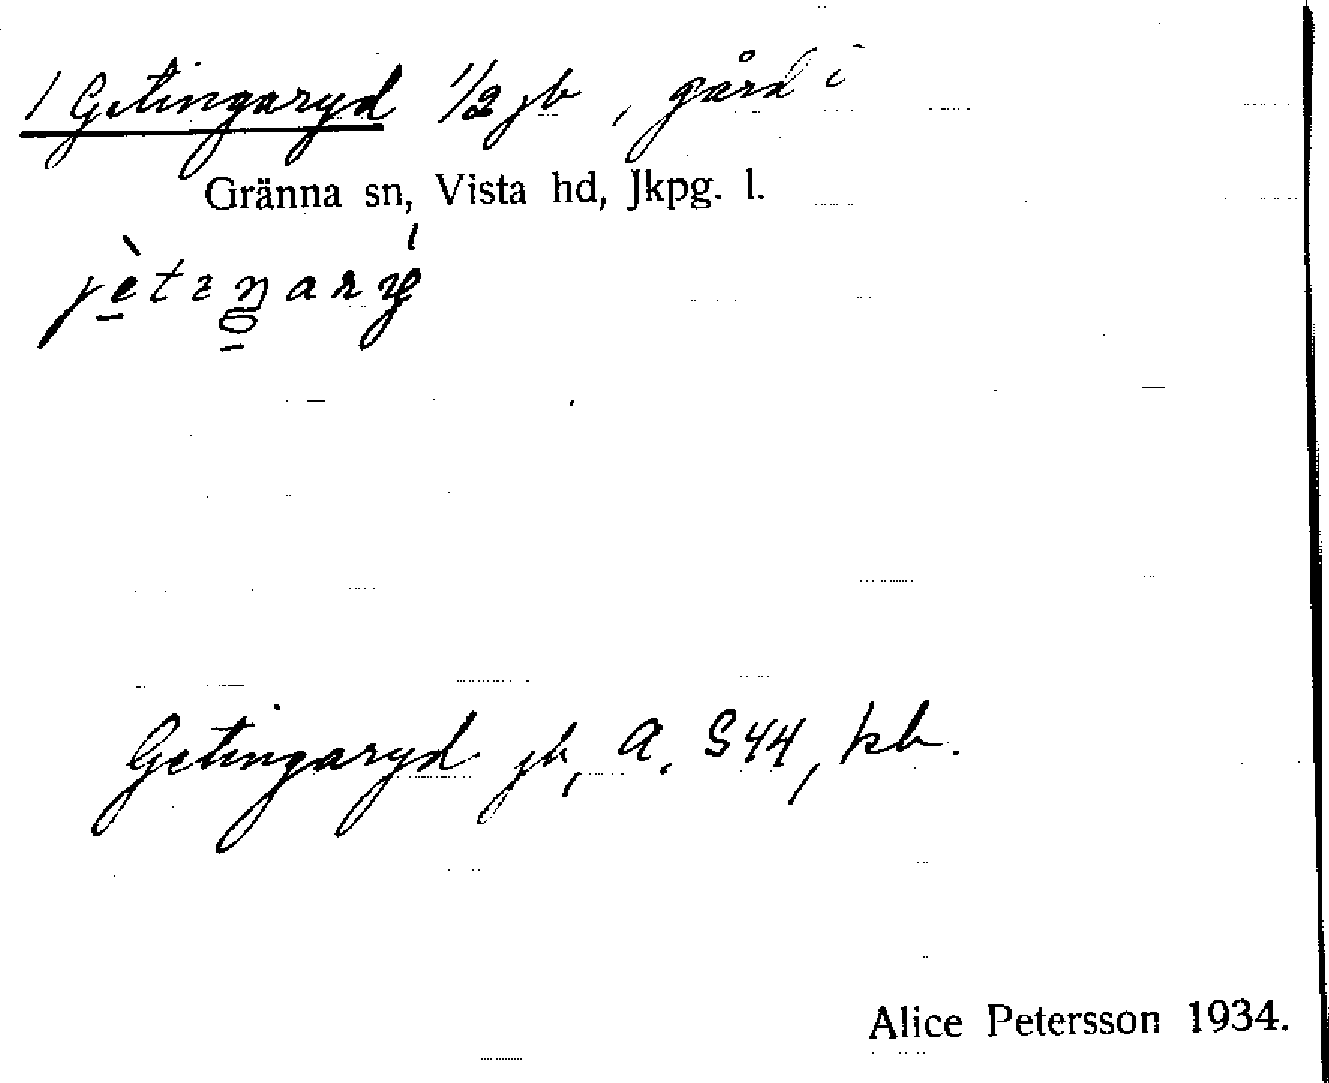 1 Getingaryd 1/2 jb, gård i
Gränna sn, Vista hd, Jkpg. l.
Getingaryd jb, A. S44, kb.
Alice Petersson 1934.